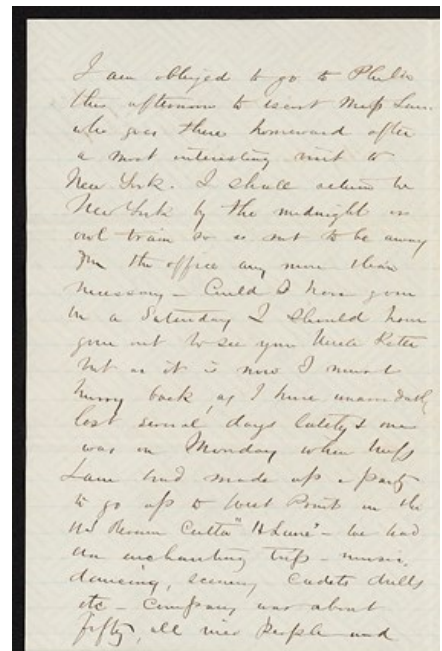 I am obliged to go to Phila
this afternoon to escort Miss Lane
who goes there homeward after
a most interesting visit to
New York. I shall return to
New York by the midnight or
owl train so as not to be away
from the office any more than
necessary – Could I have gone
on a Saturday I should have
gone out to see your Uncle
but as it is now I must
hurry back, as I have unavoidably
lost several days lately & one
was on Monday when Miss
Lane had made up a party
to go up to West Point in the
US Revenue Cutter "H Lane" – we had
an enchanting trip – music,
dancing, scenery Cadets drills
etc – Company was about
fifty, all nice people and